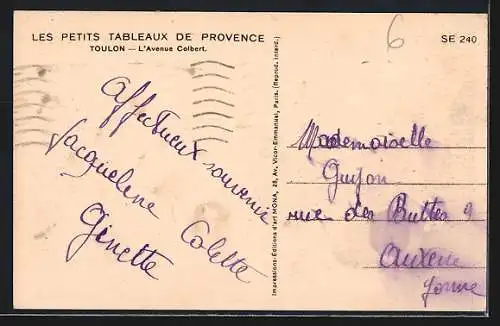 LES PETITS TABLEAUX DE PROVENCE
TOULON — L'Avenue Colbert.
6
SE 240
Affectueux souvenir
Jacqueline Colette
Ginette
Impressions-Éditions d'art MONA, 28, Av. Victor-Emmanuel, Paris. (Reprod. interd.)
Mademoiselle
Guyon
rue des Buttes 9
Auxerre
Yonne